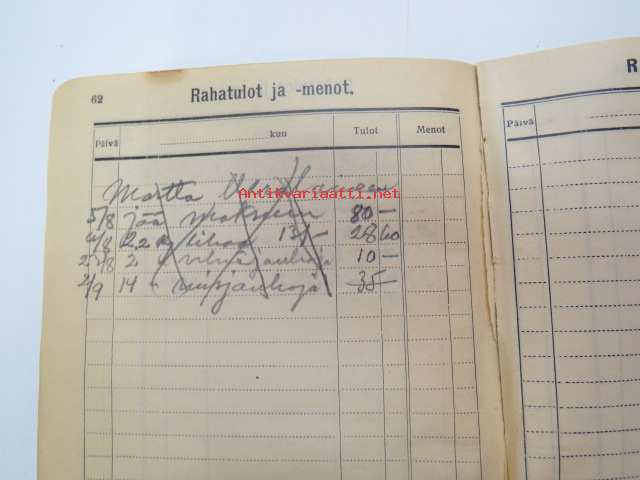 62 Rahatulot ja -menot.
R
Päivä kuu Tulot Menot
Päivä
Martta
Antikvariaatti.net
5/8 jää maksuun 80 —
6/8 2,2 lihaa 13/— 28 60
2 /8 2 " jauhoja 10 —
2/9 14 " ruisjauhoja 35 —